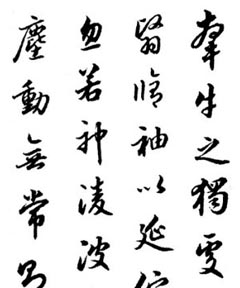 牽牛之獨處
翳脩袖以延
忽若神淩波
塵動無常